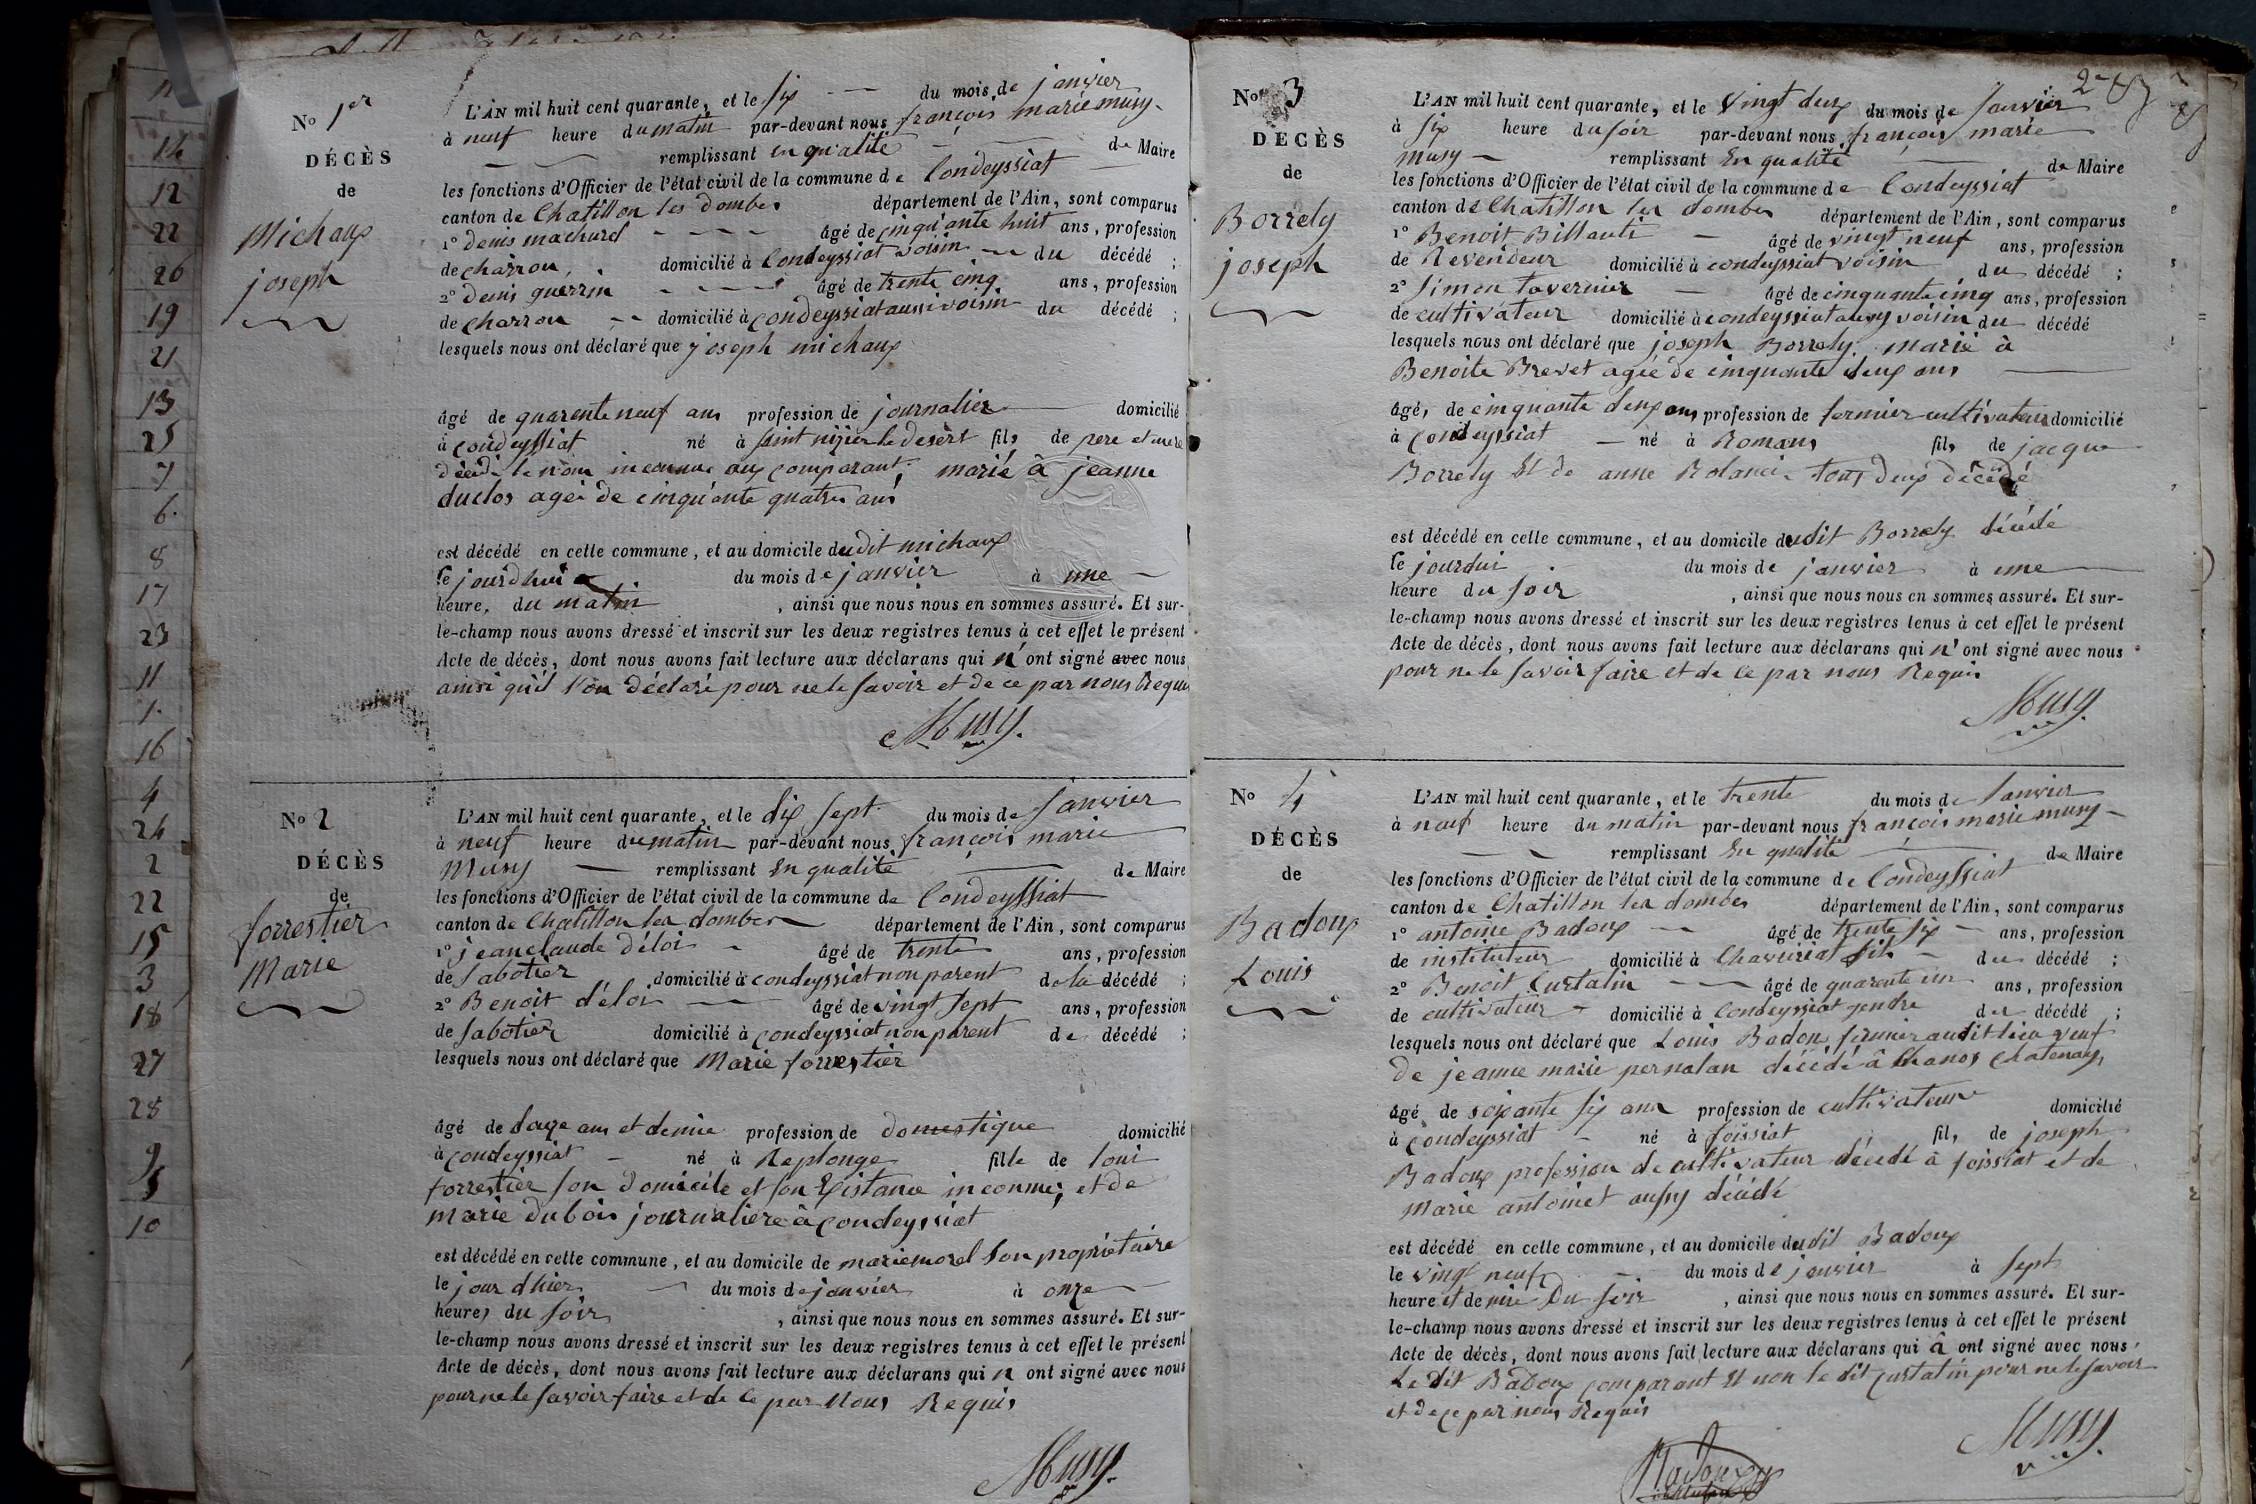 11
14
12
22
26
19
21
13
25
7
6.
8
17
23
11
1.
16
4
24
2
22
15
3
18
27
28
9
5
10
No 1er
DÉCÈS
de
Michaux
joseph
L'AN mil huit cent quarante, et le six du mois de janvier
à neuf heure du matin par-devant nous françois marie musy
remplissant en qualité de Maire
les fonctions d'Officier de l'état civil de la commune de Condeyssiat
canton de Chatillon les dombes département de l'Ain, sont comparus
1º denis machurel âgé de cinquante huit ans, profession
de charron, domicilié à Condeyssiat voisin du décédé ;
2º denis guerrin âgé de trente cinq ans, profession
de charron domicilié à condeyssiat aussi voisin du décédé ;
lesquels nous ont déclaré que joseph michaux
âgé de quarente neuf ans profession de journalier domicilié
à condeyssiat né à saint nizier le desert fils de pere et mere
décédé le nom inconnue aux comparant. marié à jeanne
duclos agée de cinquante quatre ans
est décédé en cette commune, et au domicile dudit michaux
le jourdhui du mois de janvier à une
heure, du matin , ainsi que nous nous en sommes assuré. Et sur-
le-champ nous avons dressé et inscrit sur les deux registres tenus à cet effet le présent
Acte de décès, dont nous avons fait lecture aux déclarans qui n'ont signé avec nous
ainsi qu'il l'on déclaré pour ne le savoir et de ce par nous Requis
Musy.
No 2
DÉCÈS
de
forrestier
Marie
L'AN mil huit cent quarante, et le dix sept du mois de Janvier
à neuf heure du matin par-devant nous françois marie
Musy remplissant En qualité de Maire
les fonctions d'Officier de l'état civil de la commune de Condeyssiat
canton de Chatillon les dombes département de l'Ain, sont comparus
1º jean claude d'éloi âgé de trente ans, profession
de sabotier domicilié à condeyssiat non parent de la décédé ;
2º Benoit d'éloi âgé de vingt sept ans, profession
de sabotier domicilié à condeyssiat non parent de décédé ;
lesquels nous ont déclaré que Marie forrestier
âgé de douze ans et demie profession de domestique domicilié
à condeyssiat né à Replonge fille de loui
forrestier son domicile et son Existance inconnue, et de
marie dubois journaliere à condeyssiat
est décédé en cette commune, et au domicile de marie morel son propriétaire
le jour d'hier du mois de janvier à onze
heures du soir , ainsi que nous nous en sommes assuré. Et sur-
le-champ nous avons dressé et inscrit sur les deux registres tenus à cet effet le présent
Acte de décès, dont nous avons fait lecture aux déclarans qui n ont signé avec nous
pour ne le savoir faire et de ce par Nous Requis
Musy.
No 3
DÉCÈS
de
Borrely
joseph
L'AN mil huit cent quarante, et le vingt deux du mois de Janvier
à six heure du soir par-devant nous françois marie
musy remplissant En qualité de Maire
les fonctions d'Officier de l'état civil de la commune de Condeyssiat
canton de Chatillon les dombes département de l'Ain, sont comparus
1º Benoit Billaute âgé de vingt neuf ans, profession
de Revendeur domicilié à condeyssiat voisin du décédé ;
2º Simon tavernier âgé de cinquante cinq ans, profession
de cultivateur domicilié à condeyssiat aussy voisin du décédé
lesquels nous ont déclaré que joseph Borrely. marié à
Benoite Brevet agée de cinquante deux ans
âgé, de cinquante deux ans profession de fermier cultivateur domicilié
à condeyssiat né à Romans fils de jacque
Borrely Et de anne Rolance tous deux décédé
est décédé en cette commune, et au domicile dudit Borrely décédé
le jourdui du mois de janvier à une
heure du soir , ainsi que nous nous en sommes assuré. Et sur-
le-champ nous avons dressé et inscrit sur les deux registres tenus à cet effet le présent
Acte de décès, dont nous avons fait lecture aux déclarans qui n' ont signé avec nous
pour ne le savoir faire et de ce par nous Requis
Musy.
No 4
DÉCÈS
de
Badoux
Louis
L'AN mil huit cent quarante, et le trente du mois de Janvier
à neuf heure du matin par-devant nous françois marie musy
remplissant En qualité de Maire
les fonctions d'Officier de l'état civil de la commune de Condeyssiat
canton de Chatillon les dombes département de l'Ain, sont comparus
1º antoine Badoux âgé de trente six ans, profession
de instituteur domicilié à Chaveiriat fils du décédé ;
2º Benoit Curtalin âgé de quarente un ans, profession
de cultivateur domicilié à Condeyssiat gendre du décédé ;
lesquels nous ont déclaré que Louis Badoux fermier audit lieu veuf
de jeanne marie pernatan décédé à Chanos Chatenay,
âgé de soixante six ans profession de cultivateur domicilié
à condeyssiat né à foissiat fils de joseph
Badoux profession de cultivateur décédé à foissiat et de
marie antoinet aussy décédé
est décédé en cette commune, et au domicile dudit Badoux
le vingt neuf du mois de janvier à sept
heure et demie Du soir , ainsi que nous nous en sommes assuré. Et sur-
le-champ nous avons dressé et inscrit sur les deux registres tenus à cet effet le présent
Acte de décès, dont nous avons fait lecture aux déclarans qui à ont signé avec nous
Le dit Badoux comparant Et non le dit curtalin pour ne le savoir
et de ce par nous Requis
Musy.
Badoux